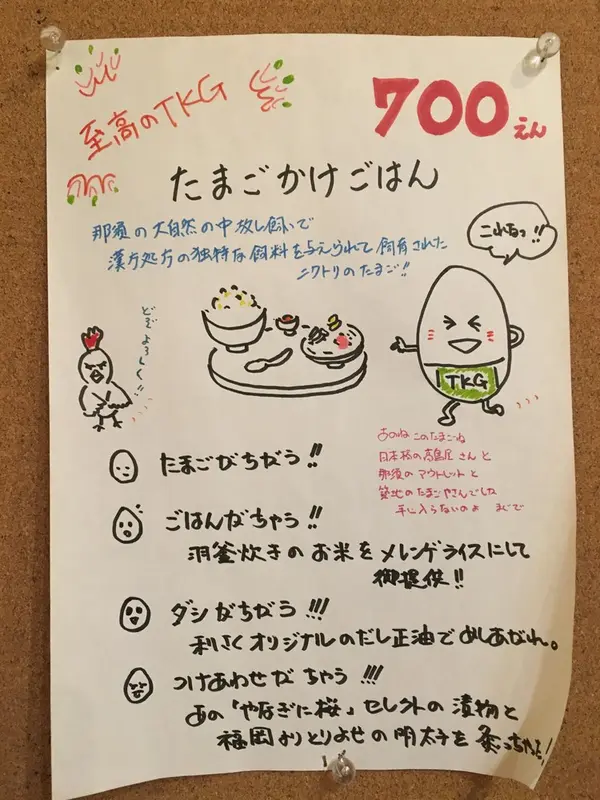 至高のTKG
700えん
たまごかけごはん
那須の大自然の中放し飼いで
漢方処方の独特な飼料を与えられて飼育された
ニワトリのたまご!!
これなっ!!
どぞよろしく!!
TKG
あのねこのたまごはね
日本橋の高島屋さんと
那須のアウトレットと
築地のたまごやさんでしか
手に入らないのよ まじで
たまごがちがう!!
ごはんがちゃう!!
羽釜炊きのお米をメレンゲライスにして
御提供!!
ダシがちがう!!!
利さくオリジナルのだし正油でめしあがれ。
つけあわせがちゃう!!!
あの「やなぎに桜」セレクトの漬物と
福岡よりとりよせの明太子を